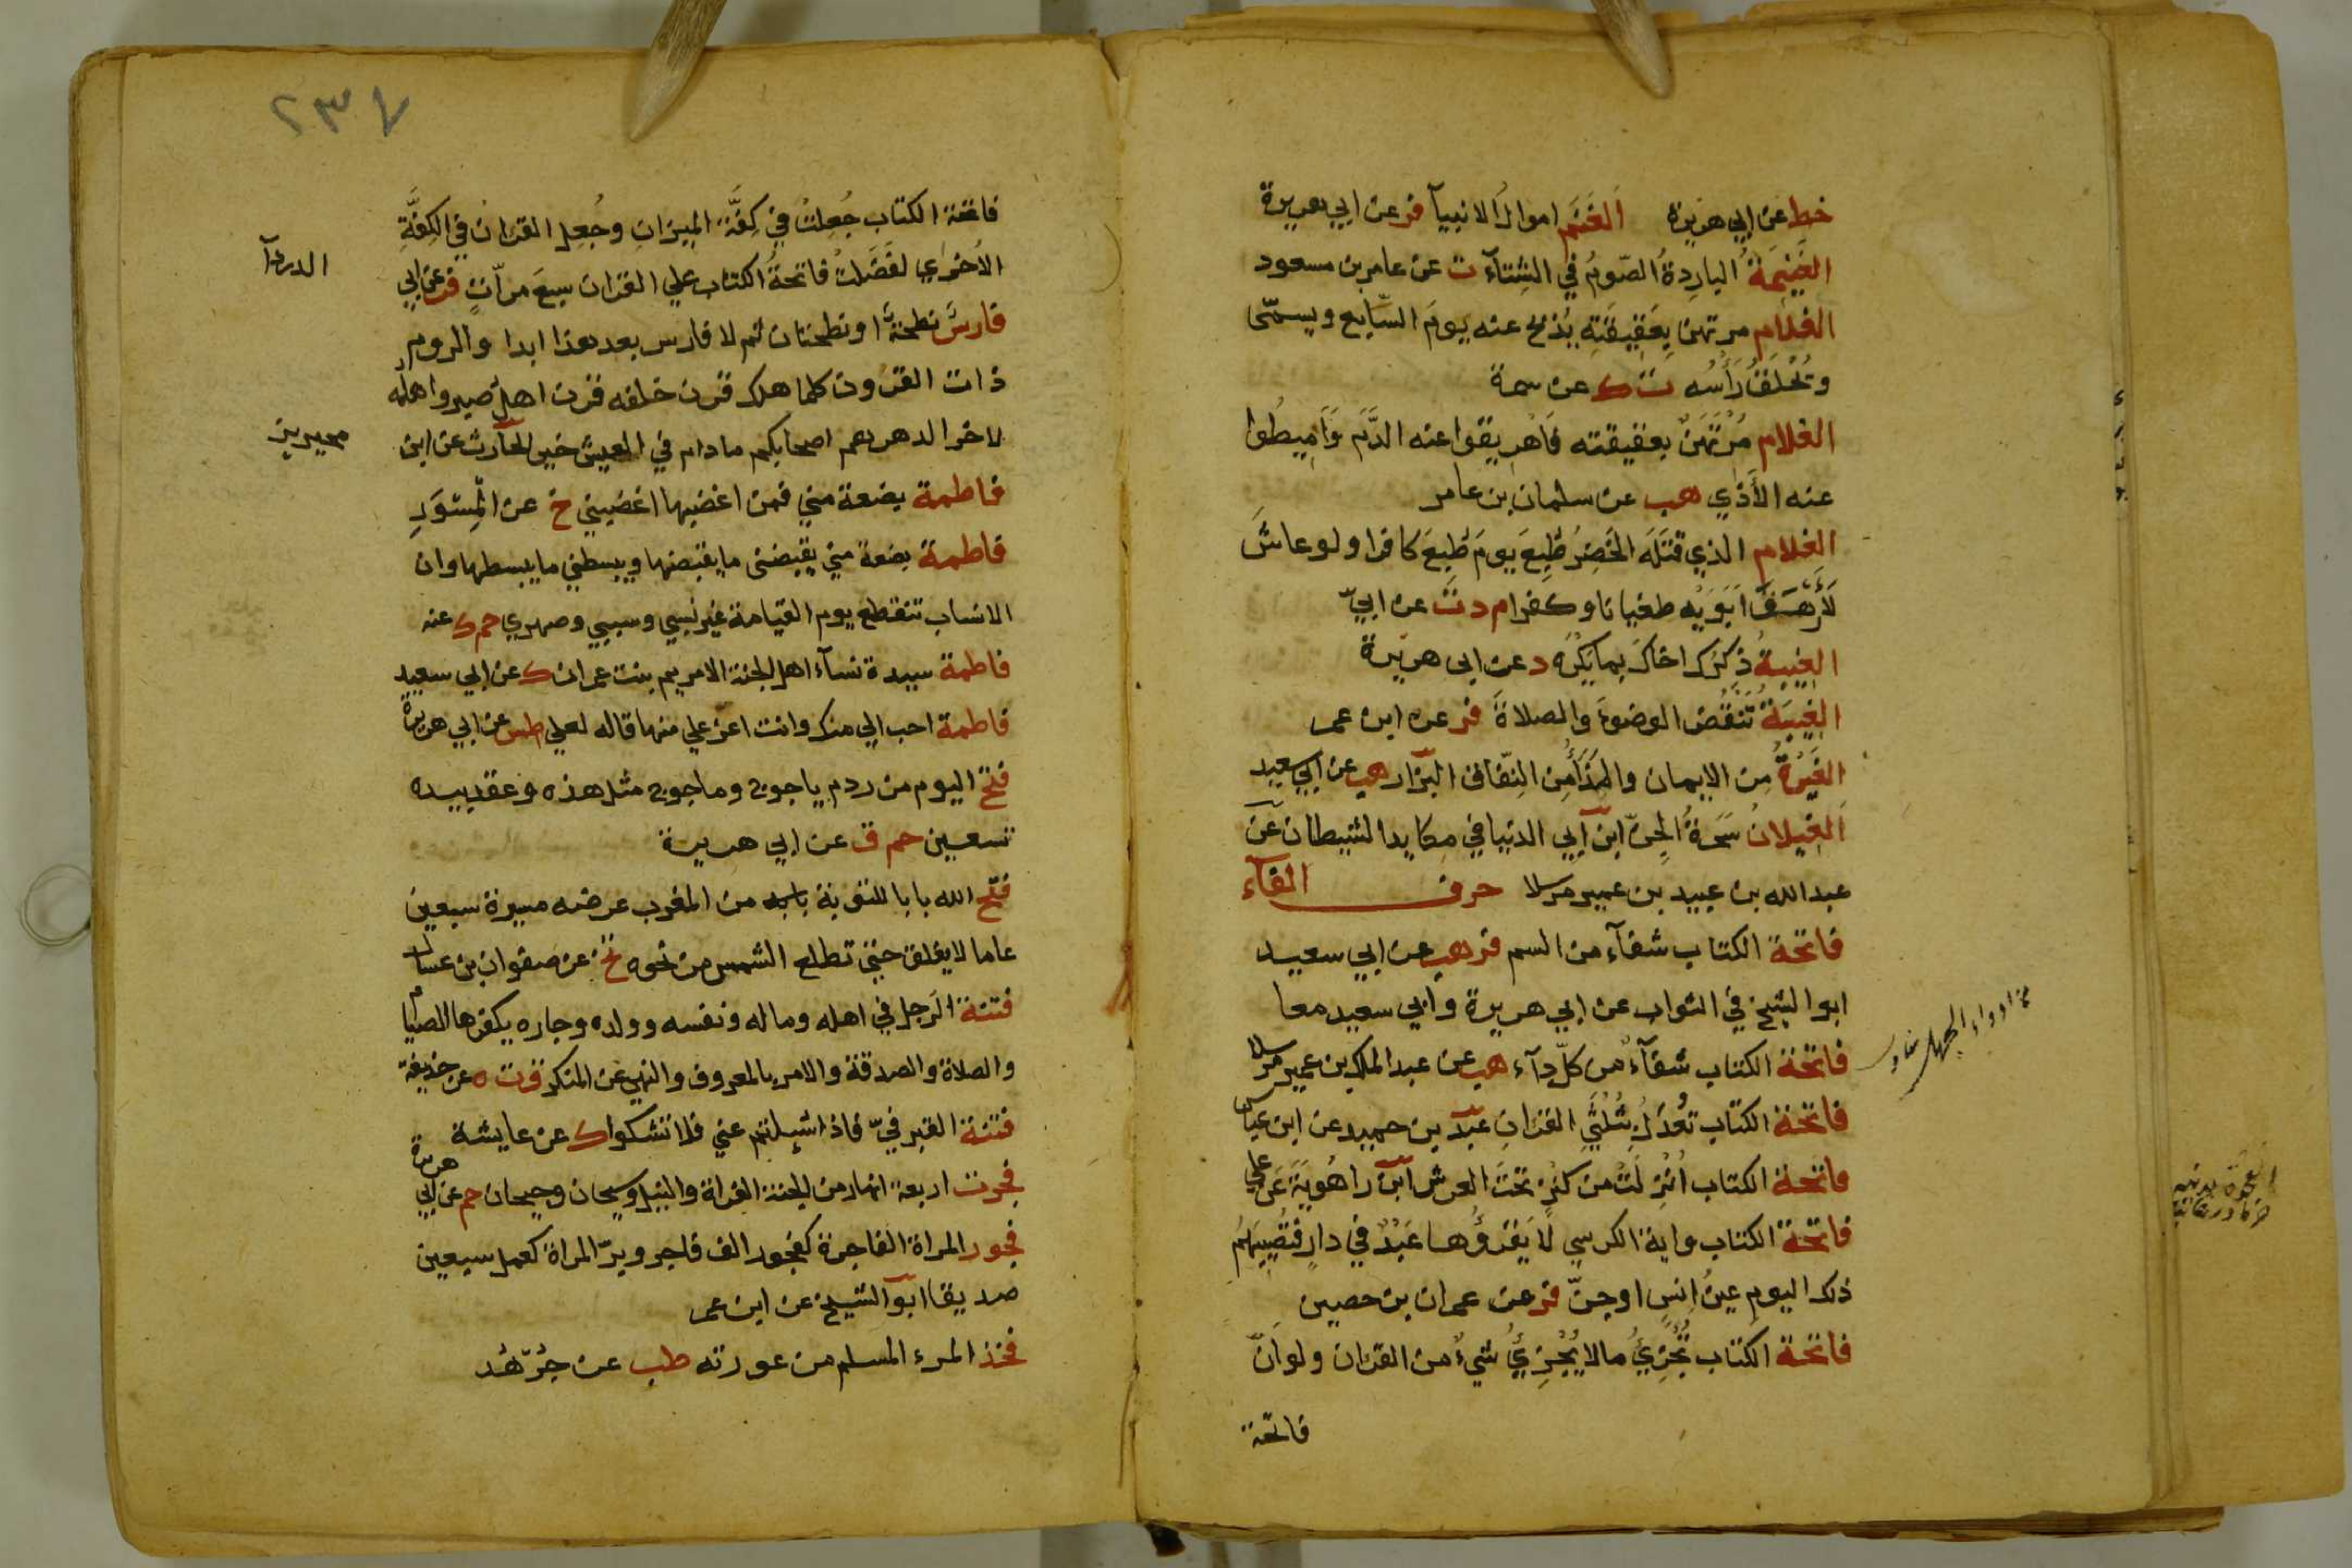 خط عن ابي هريرة الغنم اموال الانبيآ فر عن ابي هريرة
الغَنِيمَةُ الباردةُ الصّومُ في الشِتآء ت عن عامر بن مسعود
الغلام مرتهن بِعَقِيقَتِهِ يُذبح عنه يومَ السّابع ويسمّى
وتُحْلَقُ رَأْسُه ت ك عن سمرة
الغلام مُرْتَهَنٌ بعقيقته فَاهْرِيقوا عنه الدَّمَ وَأَمِيطُوا
عنه الأَذَي هب عن سلمان بن عامر
الغلام الذي قتَلَه الخَضِرُ طُبِعَ يومَ طُبِعَ كافرا ولو عاشَ
لَأَرْهَقَ اَبَوَيْه طغيانا وكفرا م د ت عن ابيّ
الغِيبةُ ذِكْرُكَ اخاكَ بما يَكْرَه د عن ابي هريرة
الغِيبَةُ تَنْقُضُ الوضوءَ والصلاةَ فر عن ابن عمر
الغَيْرَةُ مِن الايمان والمِذَاءُ مِن النِّفاق البزار هب عن ابي سعيد
الغِيلانُ سَحَرَةُ الجِنّ ابن ابي الدنيا في مكايد الشيطان عن
عبد الله بن عبيد بن عمير مرسلا حرف الفآء
فاتحة الكتاب شفآء من السم فر هب عن ابي سعيد
ابو الشيخ في الثواب عن ابي هريرة وابي سعيد معا
فاتحة الكتاب شفآءٌ من كلّ دآء هب عن عبد الملك بن عمير مرسلا
فاتحة الكتاب تُعْدَلُ بِثُلُثَيِ القرانِ عبد بن حميد عن ابن عباس
فاتحة الكتاب اُنْزِلَتْ من كَنْزٍ تحتَ العرش ابن راهُويَةَ عن علي
فاتحة الكتاب واية الكرسي لا يَقْرَؤُهما عَبْدٌ في دارٍ فتُصِيبَهُم
ذلك اليوم عينُ اِنسٍ او جنّ فر عن عمران بن حصين
فاتحة الكتاب تُجْزِئُ مالا يُجْزِئُ شيءٌ من القران ولو انّ
فاتحة
٢٣٧
فاتحة الكتاب جُعِلَتْ في كِفَّة الميزانِ وجُعِل القران في الكِفَّةِ
الأخرَي لفَضَلتْ فاتحةُ الكتاب علي القران سبعَ مرّاتٍ فر عن ابي
الدردآ
فارسُ نطحةٌ او نطحتان ثم لا فارس بعد هذا ابدا والروم
ذات القرون كلما هلك قرن خلفه قرن اهل صبر واهله
لاخر الدهر هم اصحابكم مادام في العيش خير الحارث عن ابن
محيريز
فاطمة بضعة مني فمن اغضبها اغضبني خ عن المِسْوَرِ
فاطمة بضعة مني يقبضنى ما يقبضها ويبسطني ما يبسطها وان
الانساب تنقطع يوم القيامة غير نسبي وسببي وصهري حم ك عنه
فاطمة سيدة نسآء اهل الجنة الا مريم بنت عمران ك عن ابي سعيد
فاطمة احب الي منك وانت اعزّ علي منها قاله لعلي طس عن ابي هريرة
فتح اليوم من ردم ياجوج وماجوج مثل هذه وعقد بيده
تسعين حم ق عن ابي هريرة
فتح الله بابا للتوبة من المغرب عرضه مسيرة سبعين
عاما لا يغلق حتى تطلع الشمس من نحوه تخ عن صفوان بن عسال
فتنة الرجل في اهله وماله ونفسه وولده وجاره يكفرها الصيام
والصلاة والصدقة والامر بالمعروف والنهي عن المنكر ق ت ه عن حذيفة
فتنة القبر فيّ فاذا سُيلتم عني فلا تشكوا ك عن عايشة
فجرت اربعة انهار من الجنة الفراة والنيل وسيحان وجيحان حم عن ابي هريرة
فجور المراة الفاجرة كفجور الف فاجر وبرّ المراة كعمل سبعين
صديقا ابو الشيخ عن ابن عمر
فخذ المرء المسلم من عورته طب عن جُرْهُد